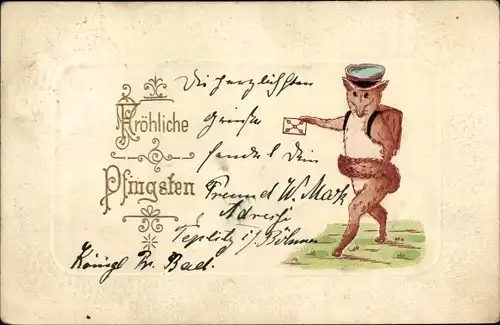 Fröhliche
Pfingsten
Die herzlichsten
Grüße
sendet Dein
Freund W. Mark
Adresse
Teplitz i/ Böhmen
Königl Pr. Bad.